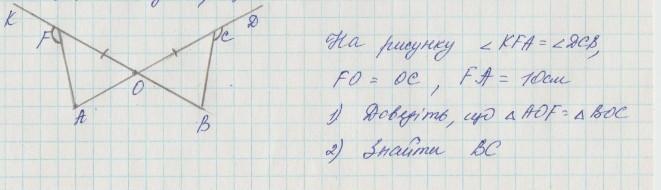 K
D
F
C
O
A
B
На рисунку ∠KFA = ∠DCB,
FO = OC, FA = 10см
1) Доведіть, що △AOF = △BOC
2) Знайти BC